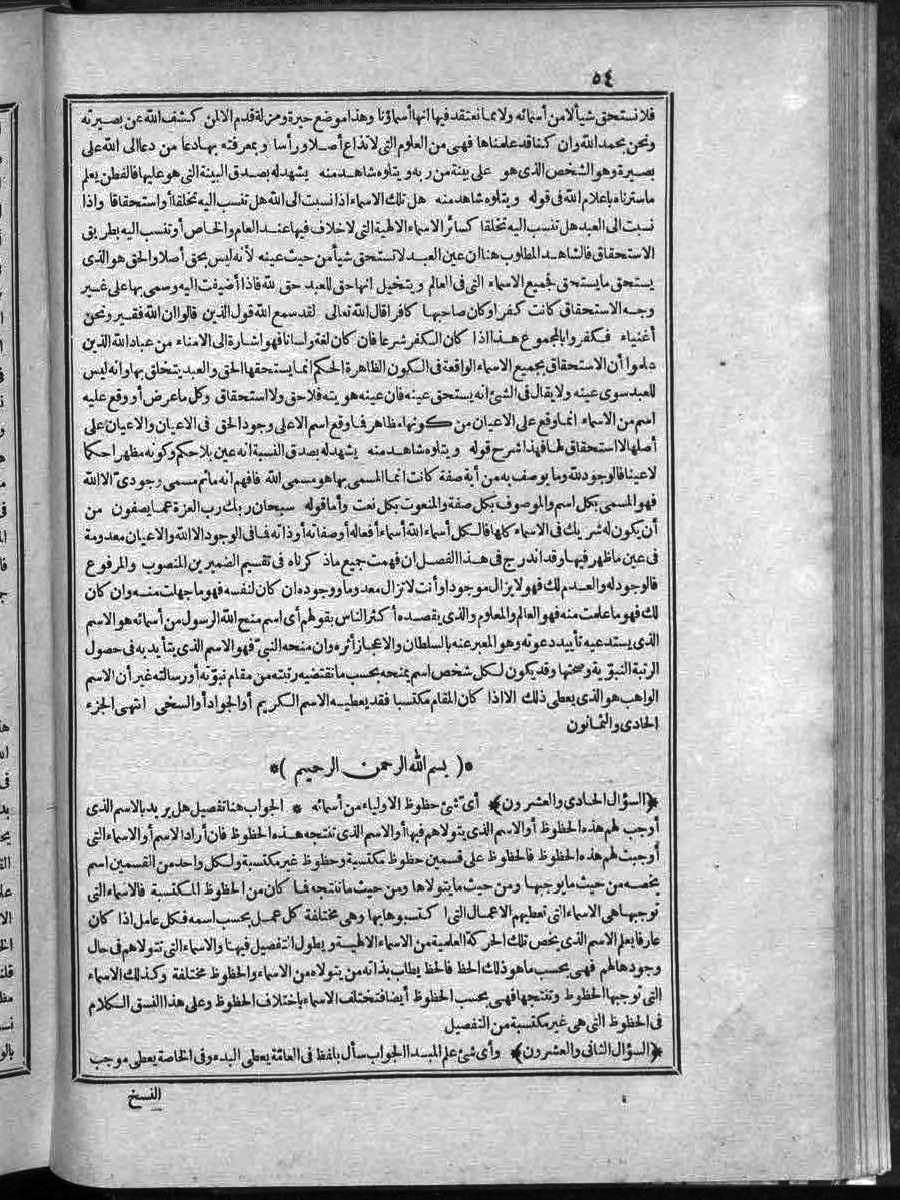 ٥٤
فلا نستحق شيأ لا من أسمائه ولا مما نعتقد فيها انها أسماؤنا وهذا موضع حيرة ومزلة قدم الا لمن كشف الله عن بصيرته
ونحن بحمد الله وان كنا قد علمناها فهى من العلوم التى لا تذاع أصلا ورأسا وبمعرفته بها دعا من دعا الى الله على
بصيرة وهو الشخص الذى هو على بينة من ربه ويتلوه شاهد منه يشهد له بصدق البينة التى هو عليها فالفطن يعلم
ما سترناه باعلام الله فى قوله ويتلوه شاهد منه هل تلك الاسماء اذا نسبت الى الله هل تنسب اليه تخلقا أو استحقاقا واذا
نسبت الى العبد هل تنسب اليه تخلقا كسائر الاسماء الالهية التى لا خلاف فيها عند العام والخاص أو تنسب اليه بطريق
الاستحقاق فالشاهد المطلوب هنا ان عين العبد لا تستحق شيأ من حيث عينه لأنه ليس بحق أصلا والحق هو الذى
يستحق ما يستحق فجميع الاسماء التى فى العالم ويتخيل انها حق للعبد حق لله فاذا أضيفت اليه وسمى بها على غير
وجه الاستحقاق كانت كفرا وكان صاحبها كافرا قال الله تعالى لقد سمع الله قول الذين قالوا ان الله فقير ونحن
أغنياء فكفروا بالمجموع هذا اذا كان الكفر شرعا فان كان لغة ولسانا فهو اشارة الى الامناء من عباد الله الذين
علموا أن الاستحقاق بجميع الاسماء الواقعة فى الكون الظاهرة الحكم انما يستحقها الحق والعبد يتخلق بها وانه ليس
للعبد سوى عينه ولا يقال فى الشئ انه يستحق عينه فان عينه هويته فلا حق ولا استحقاق وكل ما عرض أو وقع عليه
اسم من الاسماء انما وقع على الاعيان من كونها مظاهر فما وقع اسم الا على وجود الحق فى الاعيان والاعيان على
أصلها لا استحقاق لها فهذا شرح قوله ويتلوه شاهد منه يشهد له بصدق النسبة انه عين بلا حكم وكونه مظهرا حكما
لا عينا فالوجود لله وما يوصف به من أية صفة كانت انما المسمى بها هو مسمى الله فافهم انه ما ثم مسمى وجودىّ الا الله
فهو المسمى بكل اسم والموصوف بكل صفة والمنعوت بكل نعت وأما قوله سبحان ربك رب العزة عما يصفون من
أن يكون له شريك فى الاسماء كلها فالكل أسماء الله أسماء أفعاله أو صفاته أو ذاته فما فى الوجود الا الله والاعيان معدومة
فى عين ما ظهر فيها وقد اندرج فى هذا الفصل ان فهمت جميع ما ذكرناه فى تقسيم الضميرين المنصوب والمرفوع
فالوجود له والعدم لك فهو لا يزال موجودا وأنت لا تزال معدوما ووجوده ان كان لنفسه فهو ما جهلت منه وان كان
لك فهو ما علمت منه فهو العالم والمعلوم والذى يقصده أكثر الناس بقولهم أى اسم منح الله الرسول من أسمائه هو الاسم
الذى يستدعيه تأييد دعوته وهو المعبر عنه بالسلطان والاعجاز أثره وان منحه النبىّ فهو الاسم الذى يتأيد به فى حصول
الرتبة النبوّية وصحتها وقد يكون لكل شخص اسم يمنحه بحسب ما تقتضيه رتبته من مقام نبوّته أو رسالته غير أن الاسم
الواهب هو الذى يعطى ذلك الا اذا كان المقام مكتسبا فقد يعطيه الاسم الكريم أو الجواد أو السخى انتهى الجزء
الحادى والثمانون
*( بسم الله الرحمن الرحيم )*
﴿السؤال الحادى والعشرون﴾ أى شئ حظوظ الاولياء من أسمائه * الجواب هنا تفصيل هل يريد بالاسم الذى
أوجب لهم هذه الحظوظ أو الاسم الذى يتولاهم فيها أو الاسم الذى تنتجه هذه الحظوظ فان أراد الاسم أو الاسماء التى
أوجبت لهم هذه الحظوظ فالحظوظ على قسمين حظوظ مكتسبة وحظوظ غير مكتسبة ولكل واحد من القسمين اسم
يخصه من حيث ما يوجبها ومن حيث ما يتولاها ومن حيث ما تنتجه فما كان من الحظوظ المكتسبة فالاسماء التى
توجبها هى الاسماء التى تعطيهم الاعمال التى اكتسبوها بها وهى مختلفة كل عمل بحسب اسمه فكل عامل اذا كان
عارفا يعلم الاسم الذى يخص تلك الحركة العلمية من الاسماء الالهية ويطول التفصيل فيها والاسماء التى تتولاهم فى حال
وجودها لهم فهى بحسب ما هو ذلك الحظ فالحظ يطلب بذاته من يتولاه من الاسماء والحظوظ مختلفة وكذلك الاسماء
التى توجبها الحظوظ وتنتجها فهى بحسب الحظوظ أيضا فتختلف الاسماء باختلاف الحظوظ وعلى هذا النسق الكلام
فى الحظوظ التى هى غير مكتسبة من التفصيل
﴿السؤال الثانى والعشرون﴾ وأى شئ علم المبدا الجواب سأل بلفظ فى العامّة يعطى البدء وفى الخاصة يعطى موجب
النسخ